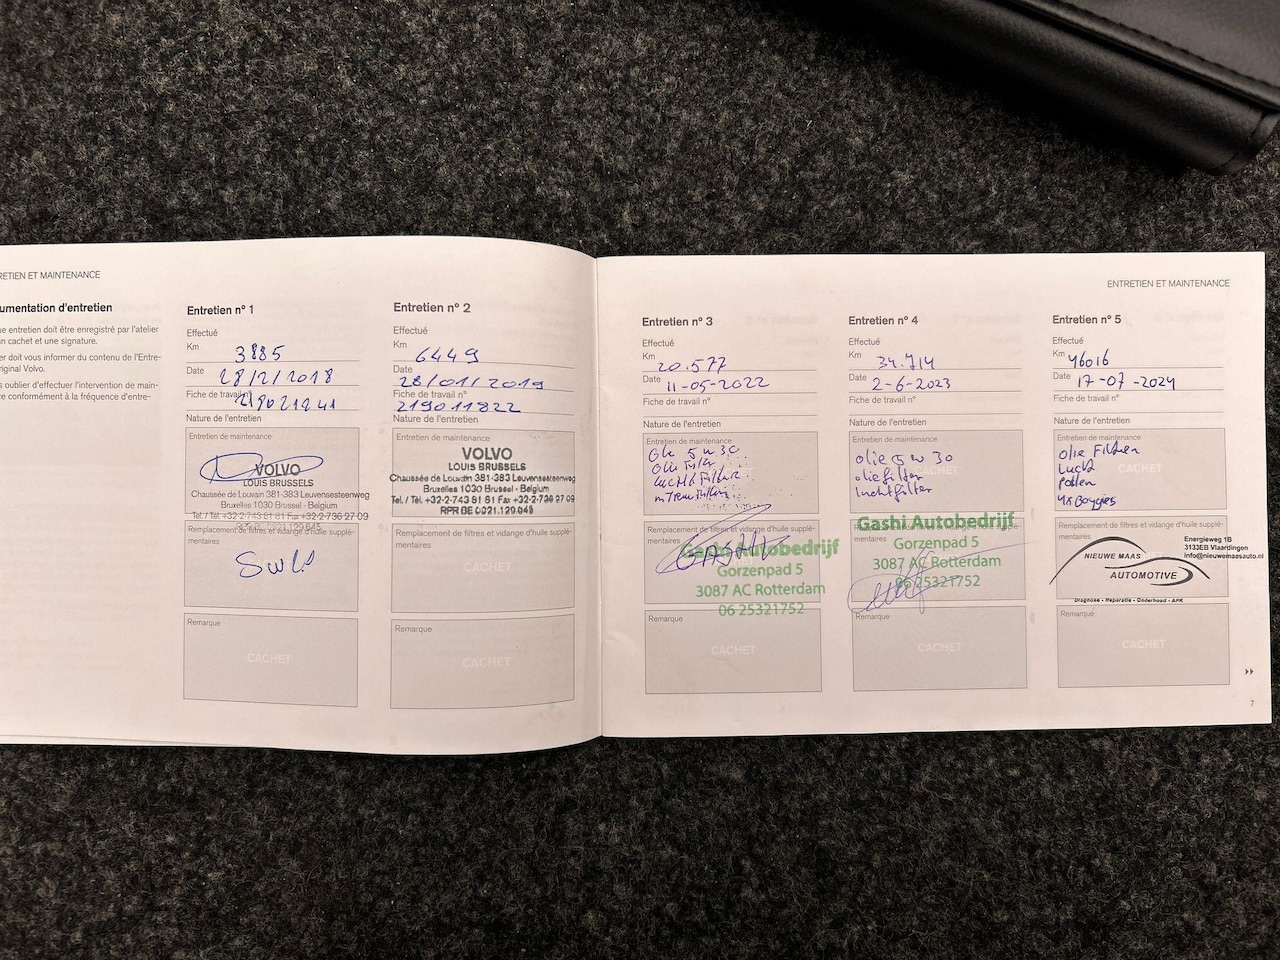 RETIEN ET MAINTENANCE
umentation d'entretien
ue entretien doit être enregistré par l'atelier
n cachet et une signature.
er doit vous informer du contenu de l'Entre-
riginal Volvo.
s oublier d'effectuer l'intervention de main-
ce conformément à la fréquence d'entre-
Entretien n° 1
Effectué
Km 3885
Date 28/2/2018
Fiche de travail n° 219021241
Nature de l'entretien
Entretien de maintenance
VOLVO
LOUIS BRUSSELS
Chaussée de Louvain 381-383 Leuvensesteenweg
Bruxelles 1030 Brussel - Belgium
Tel. / Tel. +32-2-743 81 81 Fax +32-2-736 27 09
Remplacement de filtres et vidange d'huile supplé-
mentaires
Remarque
CACHET
Entretien n° 2
Effectué
Km 6449
Date 28/01/2019
Fiche de travail n° 219011822
Nature de l'entretien
Entretien de maintenance
VOLVO
LOUIS BRUSSELS
Chaussée de Louvain 381-383 Leuvensesteenweg
Bruxelles 1030 Brussel - Belgium
Tel. / Tel. +32-2-743 81 81 Fax +32-2-736 27 09
RPR BE 0021.129.045
Remplacement de filtres et vidange d'huile supplé-
mentaires
CACHET
Remarque
CACHET
ENTRETIEN ET MAINTENANCE
Entretien n° 3
Effectué
Km 20.577
Date 11-05-2022
Fiche de travail n°
Nature de l'entretien
Entretien de maintenance
5w30
Remplacement de filtres et vidange d'huile supplé-
mentaires
Gashi Autobedrijf
Gorzenpad 5
3087 AC Rotterdam
06 25321752
Remarque
CACHET
Entretien n° 4
Effectué
Km 34.714
Date 2-6-2023
Fiche de travail n°
Nature de l'entretien
Entretien de maintenance
olie 5w30
oliefilter
luchtfilter
Gashi Autobedrijf
Gorzenpad 5
3087 AC Rotterdam
06 25321752
mentaires
Remarque
CACHET
Entretien n° 5
Effectué
Km 46016
Date 17-07-2024
Fiche de travail n°
Nature de l'entretien
Entretien de maintenance
olie Filter
Lucht
pollen
4x Bougies
Remplacement de filtres et vidange d'huile supplé-
mentaires
NIEUWE MAAS
AUTOMOTIVE
Energieweg 1B
3133EB Vlaardingen
info@nieuwemaasauto.nl
Diagnose - Reparatie - Onderhoud - APK
Remarque
CACHET
7